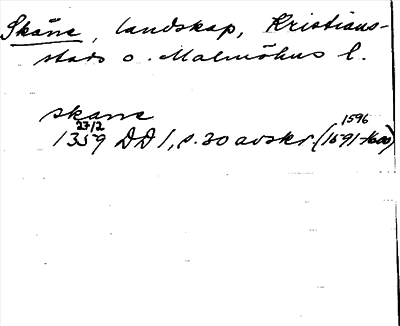 Skåne, landskap, Kristians-
stads o. Malmöhus l.
skane
1359 23/2 DD 1, s. 30 avskr. (1591-1600) 1596